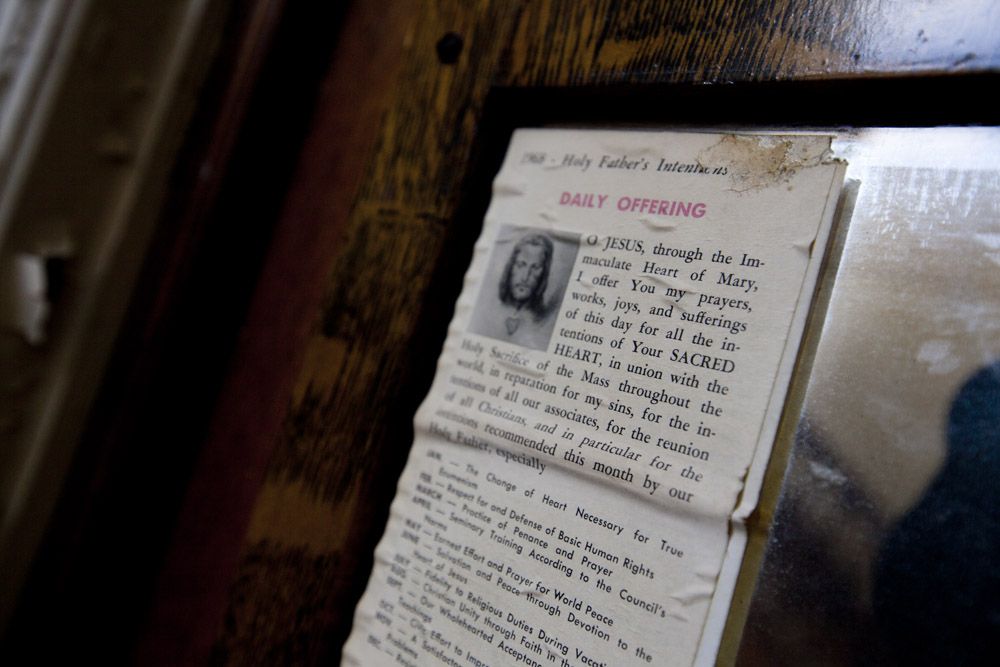 1968 - Holy Father's Intentions
DAILY OFFERING
O JESUS, through the Im-
maculate Heart of Mary,
I offer You my prayers,
works, joys, and sufferings
of this day for all the in-
tentions of Your SACRED
HEART, in union with the
Holy Sacrifice of the Mass throughout the
world, in reparation for my sins, for the in-
tentions of all our associates, for the reunion
of all Christians, and in particular for the
intentions recommended this month by our
Holy Father, especially
JAN. — The Change of Heart Necessary for True
Ecumenism
FEB. — Respect for and Defense of Basic Human Rights
MARCH — Practice of Penance and Prayer
APRIL — Seminary Training According to the Council's
Norms
MAY — Earnest Effort and Prayer for World Peace
JUNE — Salvation and Peace through Devotion to the
Heart of Jesus
JULY — Fidelity to Religious Duties During Vacati
AUG. — Christian Unity through Faith in the
SEPT. — Our Wholehearted Acceptanc
Teachings
OCT. — City Effort to Impro
NOV. — A Satisfacto
Problems
DEC.